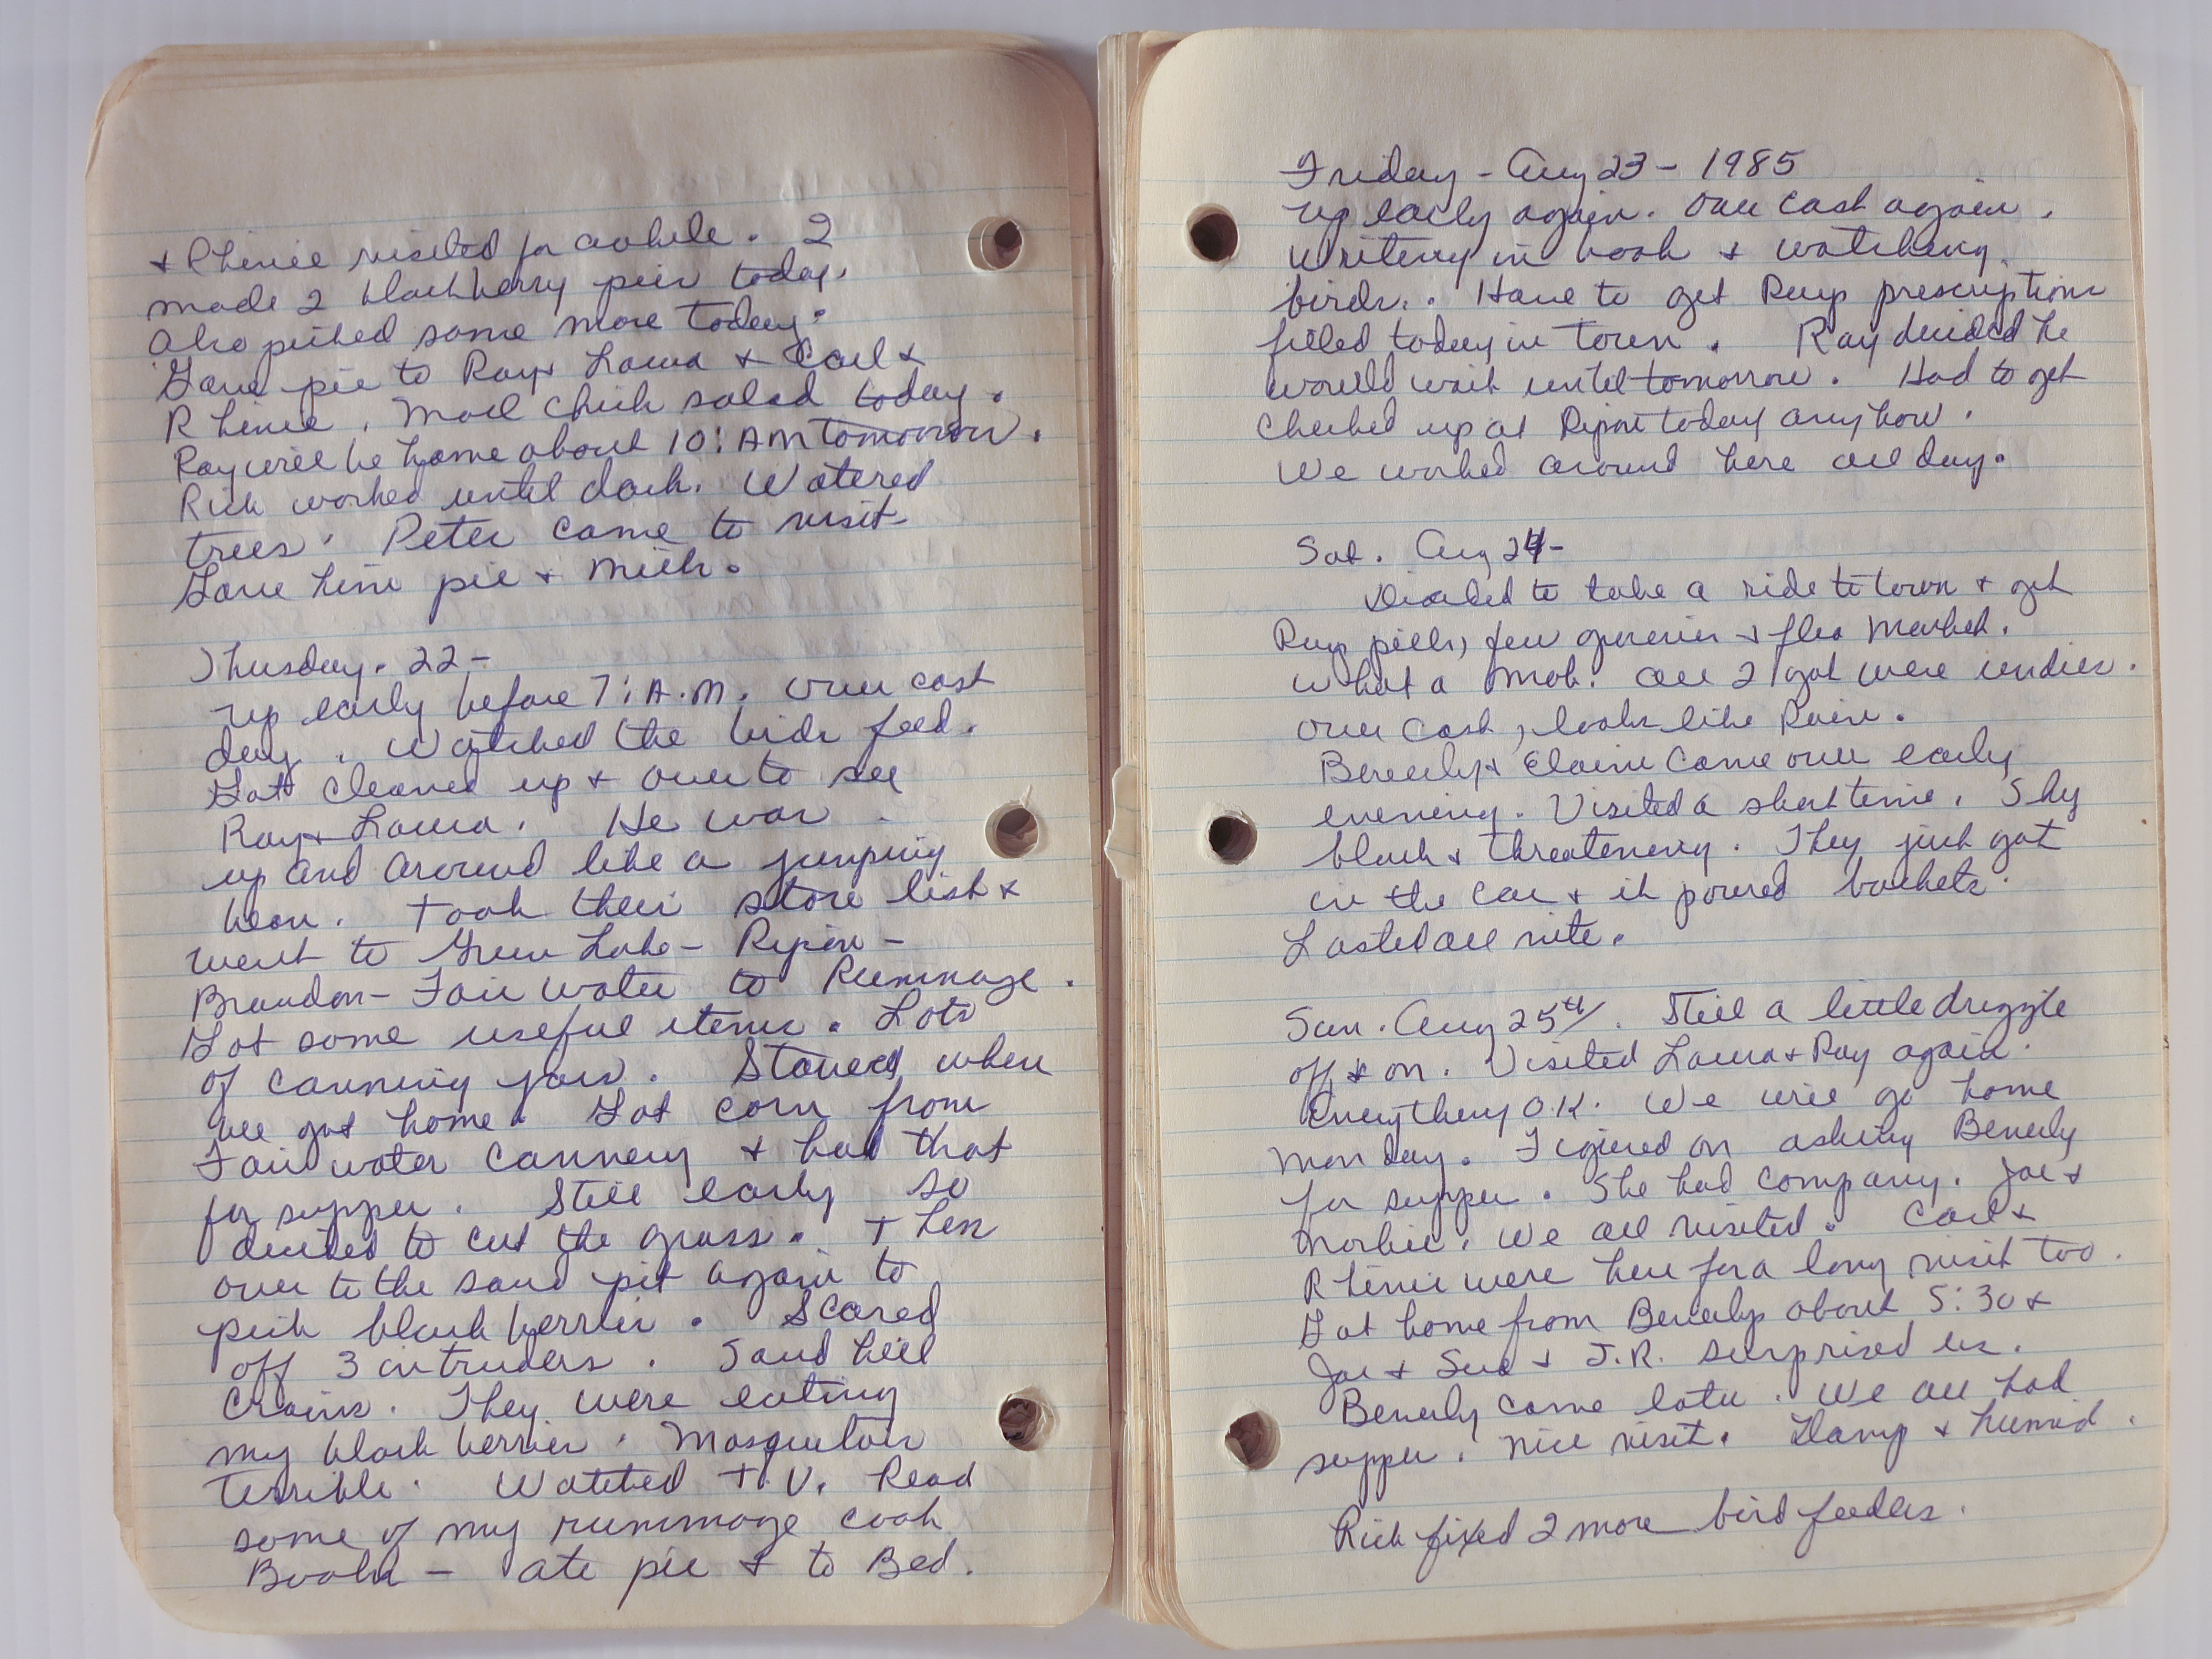 & Rhenie visited for awhile. I
made 2 blackberry pies today.
Also picked some more today.
Gave pie to Ray & Laura & Carl &
Rhenie. Mad chick salad today.
Ray will be home about 10: AM tomorrow.
Rick worked until dark. Watered
trees. Peter came to visit
Gave him pie & milk.
Thusday. 22-
up early before 7: A.M. over cast
day. Watched the birds feed.
Got cleaned up & over to see
Ray & Laura. He was
up and around like a jumping
bean. Took their store list &
went to Green Lake - Ripon -
Brandon - Fair water to Rummage.
Got some useful items. Lots
of canning jars. Stoned when
we got home. Got corn from
Fair water Cannery & had that
for supper. Still early so
decided to cut the grass. Then
over to the sand pit again to
pick black berries. Scared
off 3 intruders. Sand hill
Crains. They were eating
my black berries. Mosquitoes
terrible. Watched T.V. Read
some of my rummage cook
Books - ate pie & to Bed.
Friday - Aug 23 - 1985
up early again. Over cast again.
Writeing in book & watching
birds. Have to get Rays prescriptions
filled today in town. Ray decided he
would wait until tomorrow. Had to get
checked up at Ripon today anyhow.
We worked around here all day.
Sat. Aug 24-
Decided to take a ride to town & get
Rays pills, few groceries & flea market.
What a mob. All I got were undies.
Over cast, looks like Rain.
Beverly & Elaine came over early
evening. Visited a short time. Sky
black & threatening. They just got
in the car & it poured buckets.
Lasted all nite.
Sun. Aug 25th. Still a little drizzle
off & on. Visited Laura & Ray again.
Everything O.K. We will go home
Monday. Figured on asking Beverly
for supper. She had company. Joe &
We all visited. Carl &
Rhenie were here for a long visit too.
Got home from Beverlys about 5:30 &
Joe & Sue & J.R. surprised us.
Beverly came later. We all had
supper. Nice visit. Damp & humid.
Rick fixed 2 more bird feeders.